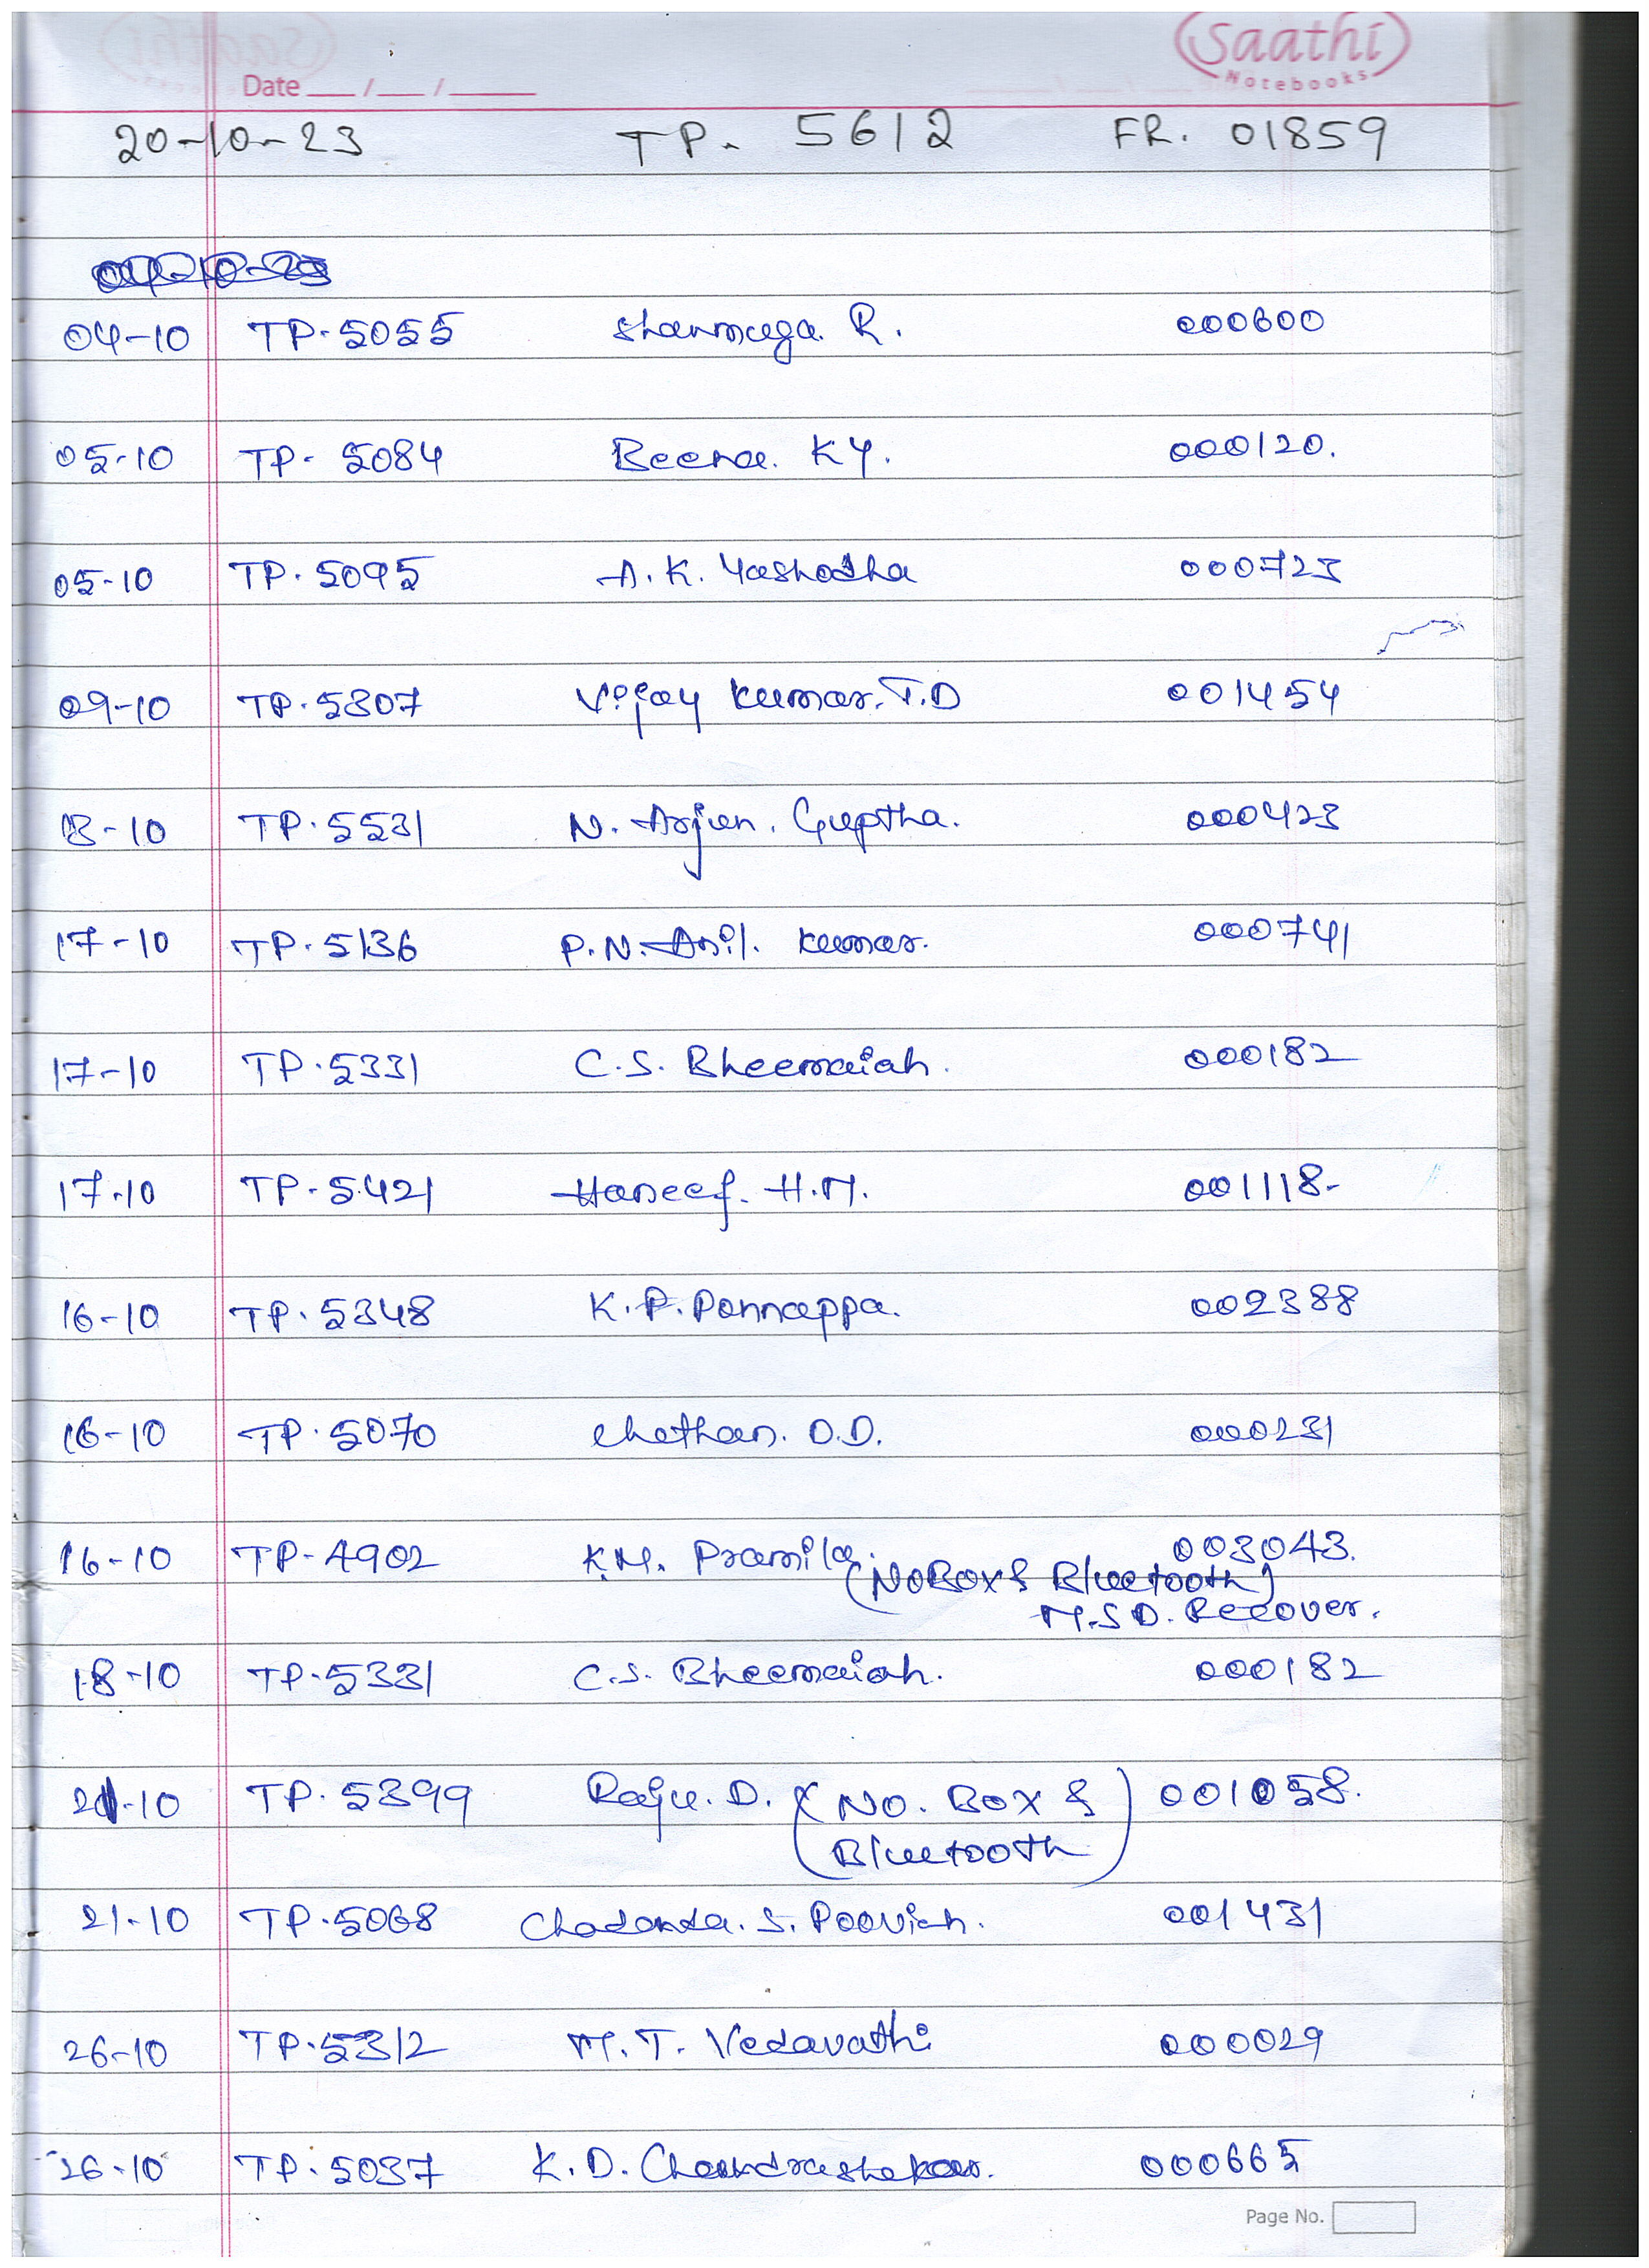 Saathi
Notebooks
Date ___/___/_____
20-10-23 TP. 5612 FR. 01859
04-10 TP. 5055 Shanmuga. R. 000600
05-10 TP. 5084 Beena. K Y. 000120.
05-10 TP. 5095 A. K. Yashodha 000723
09-10 TP. 5307 Vijay Kumar. T.D 001454
13-10 TP. 5531 N. Arjun. Guptha. 000423
17-10 TP. 5136 P. N. Anil. Kumar. 000741
17-10 TP. 5331 C. S. Bheemaiah. 000182
17-10 TP. 5421 Haneef. H.M. 001118-
16-10 TP. 5348 K. P. Ponnappa. 002388
16-10 TP. 5070 Chethan. O.D. 000231
16-10 TP-4902 K.M. Pramila. 003043.
(No Box & Bluetooth)
M.S D. Recover.
18-10 TP. 5331 C.S. Bheemaiah. 000182
21-10 TP. 5399 Raju. D. (NO. BOX & 001058.
Bluetooth)
21-10 TP. 5068 S. Pooviah. 001431
26-10 TP. 5312 M. T. Vedavathi 000029
26-10 TP. 5037 K. D. Chandrashekar. 000665
Page No.